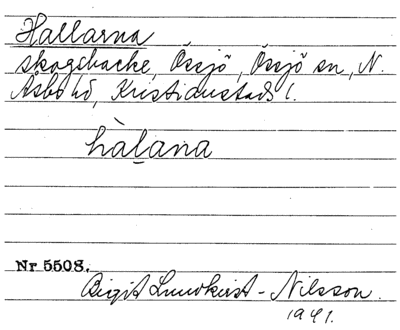 Hallarna
skogsbacke, Össjö, Össjö sn, N.
Åsbo hd, Kristianstads l.
hàlana
Nr 5508.
Birgit Lundkvist-Nilsson.
1941.